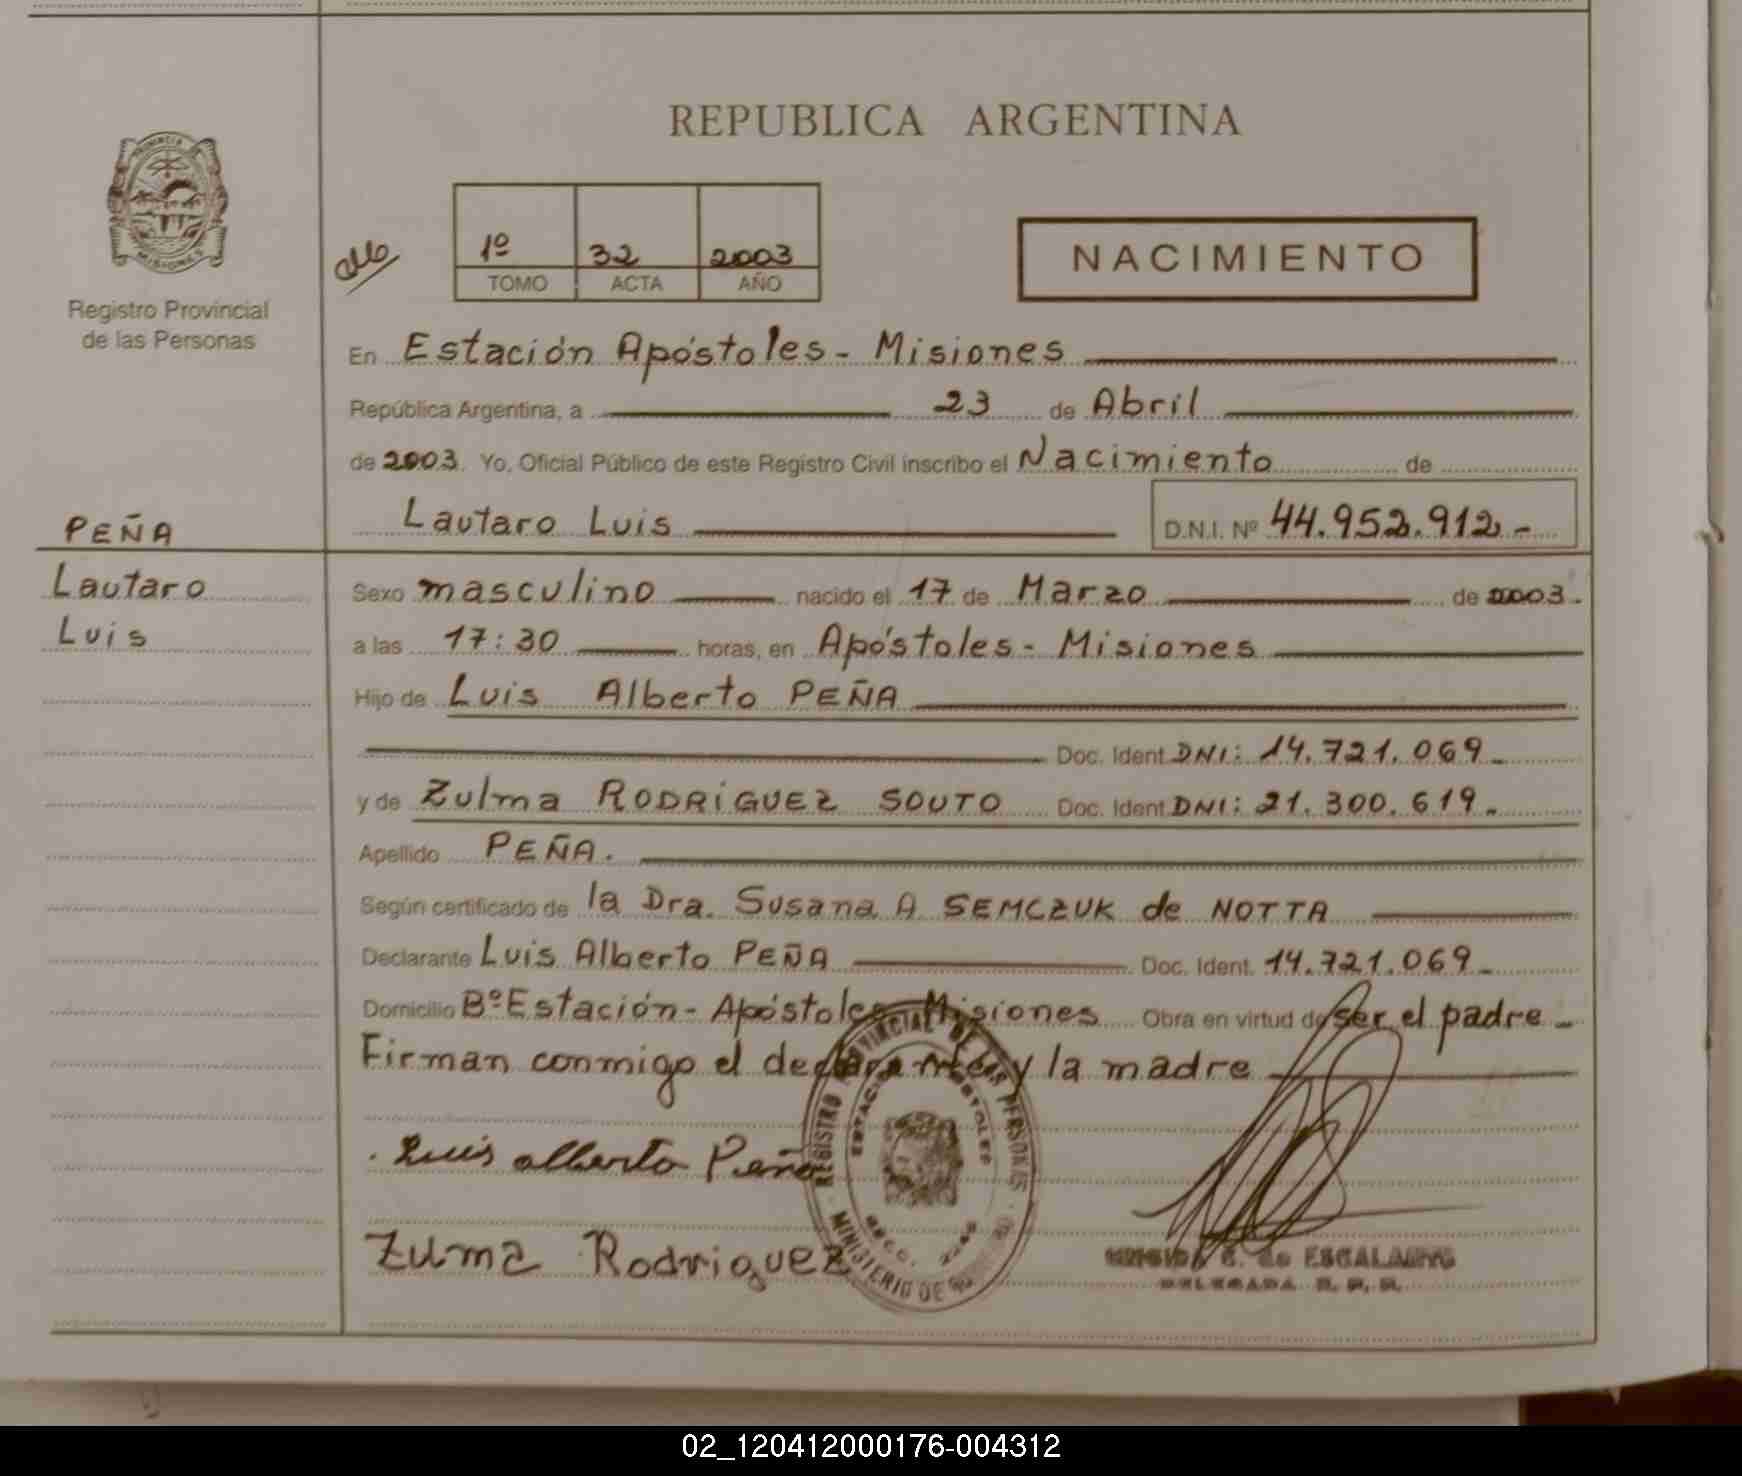 REPUBLICA ARGENTINA
PROVINCIA DE
MISIONES
Registro Provincial
de las Personas
1º 32 2003
TOMO ACTA AÑO
NACIMIENTO
En Estación Apóstoles - Misiones
República Argentina, a 23 de Abril
de 2003. Yo, Oficial Público de este Registro Civil inscribo el Nacimiento de
Lautaro Luis D.N.I. Nº 44.952.912.-
PEÑA
Lautaro
Luis
Sexo masculino nacido el 17 de Marzo de 2003.
a las 17:30 horas, en Apóstoles - Misiones
Hijo de Luis Alberto PEÑA
Doc. Ident. DNI: 14.721.069.
y de Zulma RODRIGUEZ SOUTO Doc. Ident. DNI: 21.300.619.
Apellido PEÑA.
Según certificado de la Dra. Susana A SEMCZUK de NOTTA
Declarante Luis Alberto PEÑA Doc. Ident. 14.721.069.
Domicilio Bº Estación - Apóstoles Misiones Obra en virtud de ser el padre
Firman conmigo el declarante y la madre
Luis alberto Peña
Zulma Rodriguez
REGISTRO PROVINCIAL DE LAS PERSONAS
MINISTERIO DE
de ESCALANTE
DELEGADA R. P. P.
02_120412000176-004312